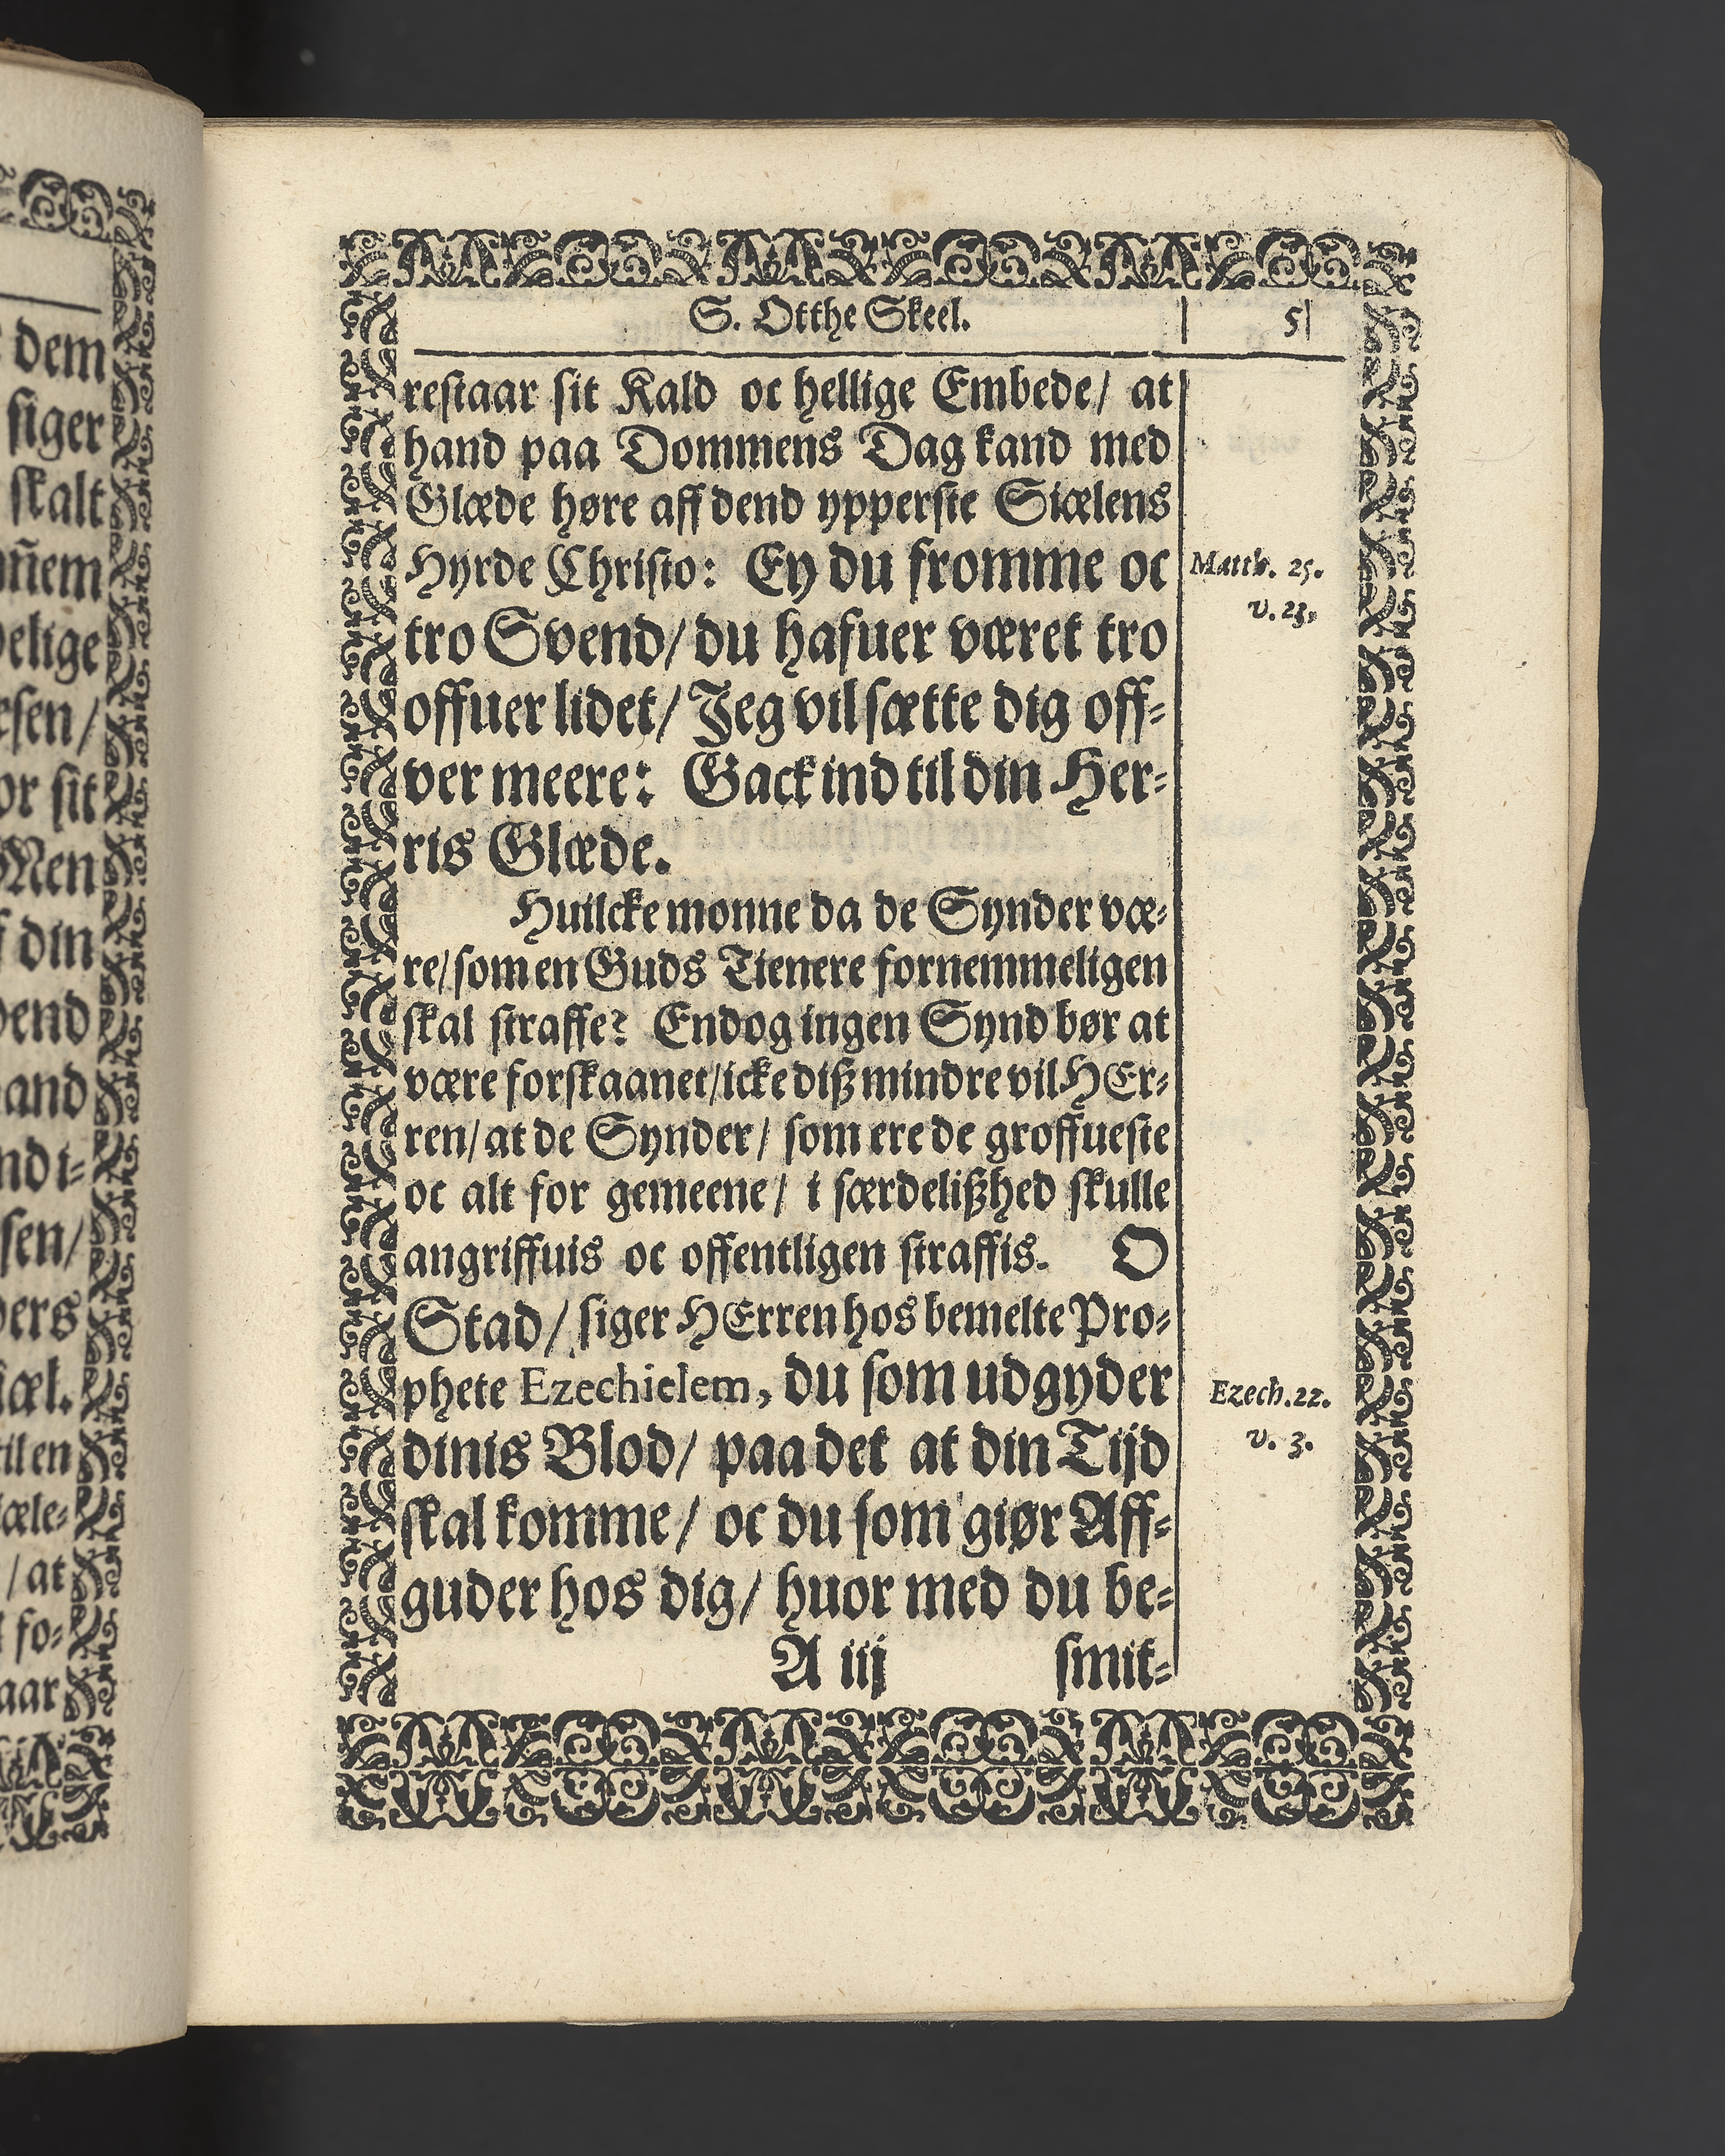 dem
siger
skalt
elige
sen/
or sit
Men
din
end
and
sen/
til en
/ at
fo⸗
aar
S. Otthe Skeel.
5
restaar sit Kald oc hellige Embede/ at
hand paa Dommens Dag kand med
Glæde høre aff dend ypperste Siælens
Hyrde Christo: Ey du fromme oc
Matth. 25.
v. 23,
tro Svend/ du hafuer været tro
offuer lidet/ Jeg vil sætte dig off⸗
ver meere: Gack ind til din Her⸗
ris Glæde.
Huilcke monne da de Synder væ⸗
re/ som en Guds Tienere fornemmeligen
skal straffe? Endog ingen Synd bør at
være forskaanet/ icke diß mindre vil HEr⸗
ren/ at de Synder/ som ere de groffueste
oc alt for gemeene/ i særdelißhed skulle
angriffuis oc offentligen straffis. O
Stad/ siger HErren hos bemelte Pro⸗
phete Ezechielem, du som udgyder
Ezech. 22.
v. 3.
dinis Blod/ paa det at din Tijd
skal komme/ oc du som giør Aff⸗
guder hos dig/ huor med du be⸗
A iij
smit⸗